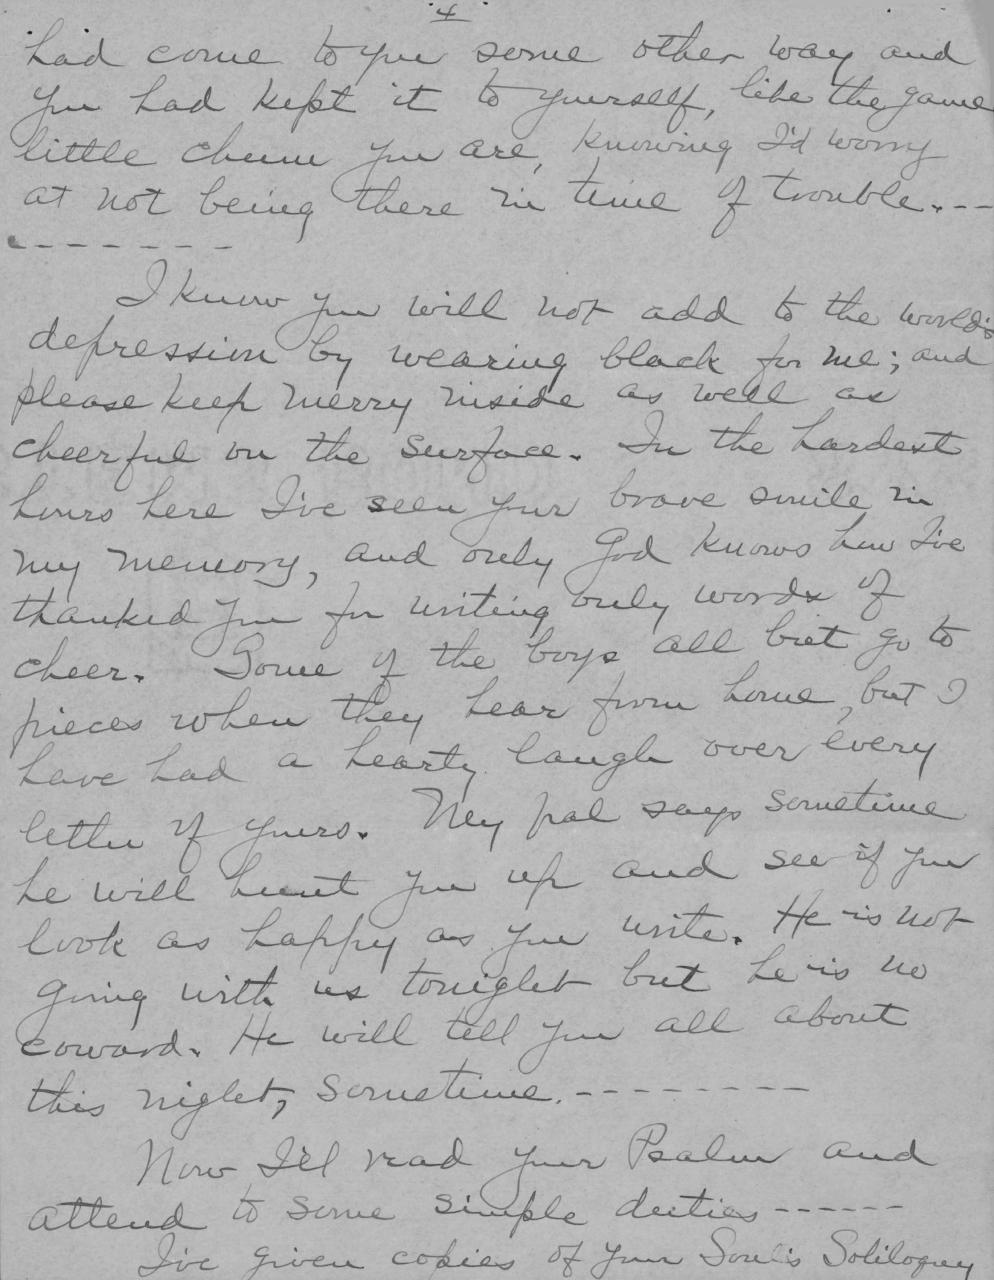 4
had come to you some other way and
you had kept it to yourself, like the game
little chum you are, knowing I'd worry
at not being there in time of trouble.--
-------
I know you will not add to the world's
depression by wearing black for me; and
please keep merry inside as well as
cheerful on the surface. In the hardest
hours here I've seen your brave smile in
my memory, and only God knows how I've
thanked you for writing only words of
cheer. Some of the boys all but go to
pieces when they hear from home, but I
have had a hearty laugh over every
letter of yours. My pal says sometime
he will hunt you up and see if you
look as happy as you write. He is not
going with us tonight but he is no
coward. He will tell you all about
this night, sometime.--------
Now I'll read your Psalm and
attend to some simple duties------
I've given copies of your Soul's Soliloquy